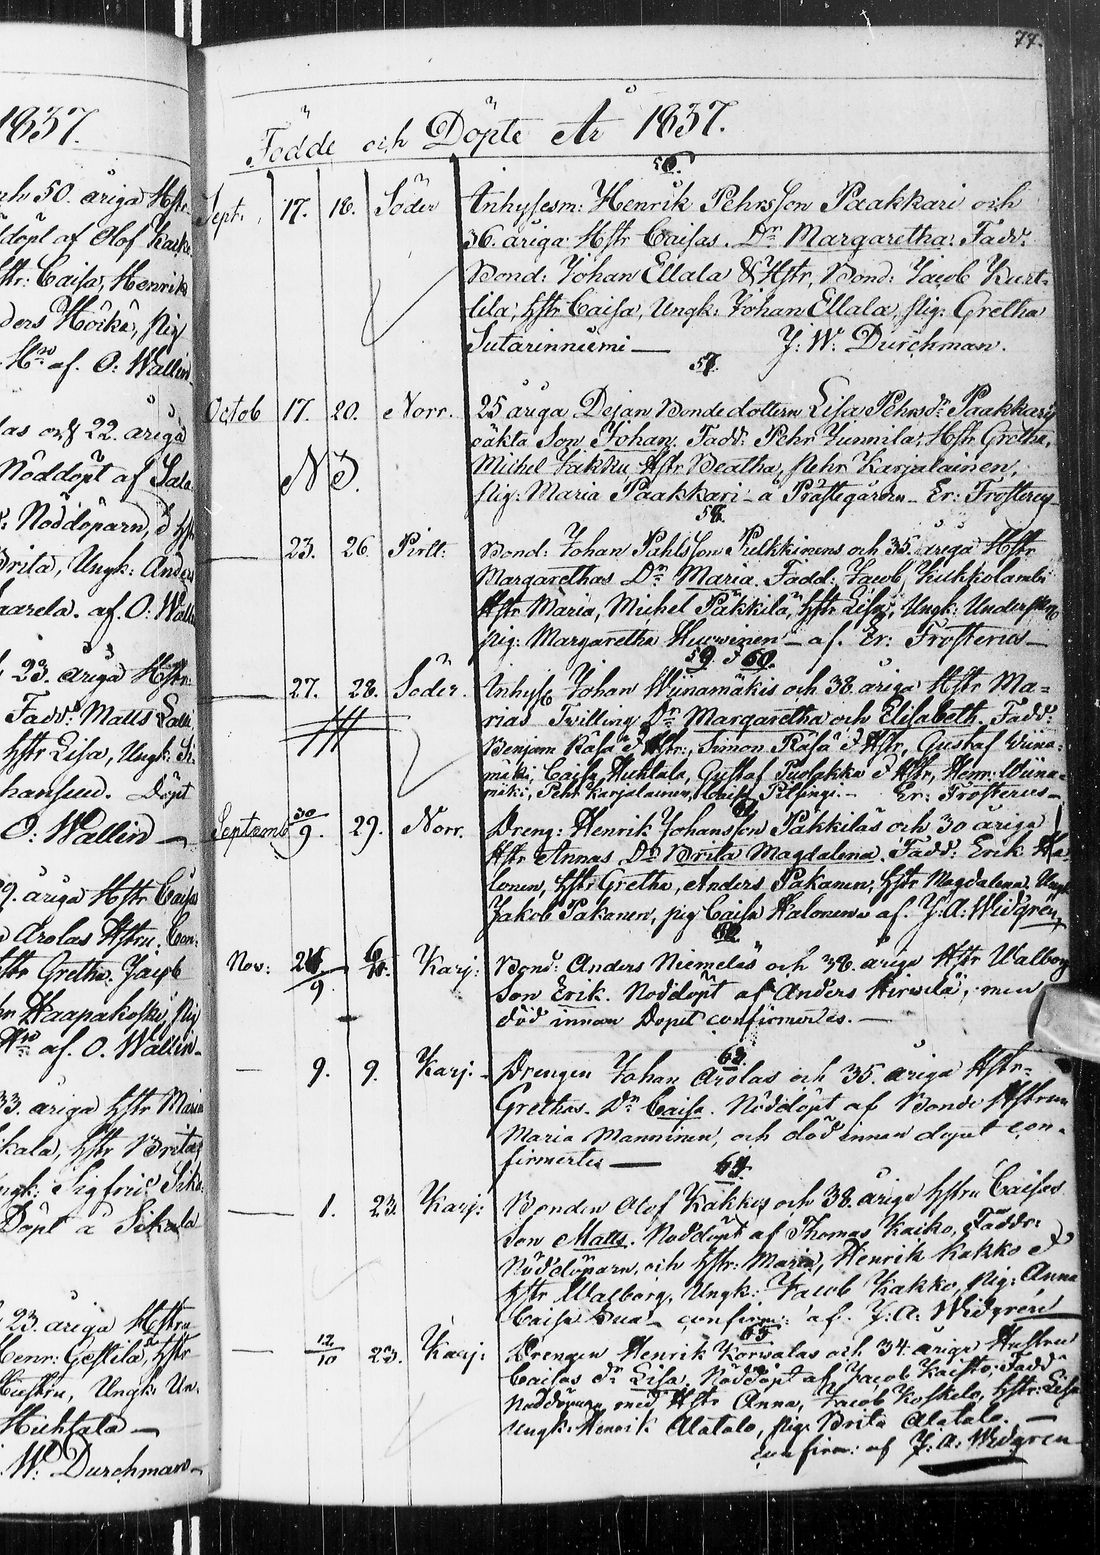 77.
1837.
Födde och Döpte År 1837.
och 50. åriga Hstr
döpt af Olof Karke
Hstr: Caisa, Henrik
ders Hörkä, pig
af. O: Wallin
22. åriga
Nöddöpt af
Nöddöparn, & Hstr
Brita, Ungk: Anders
aarela. af. O: Wallin
23. åriga Hstr
Fadd: Matts
Hstr Lisa, Ungk:
Döpt
O: Wallin —
9. åriga Hstr Caisa
Arolas Hstru.
Hstr Gretha. Jacob
Haapakoski, Pig
af. O. Wallin.
33. åriga Hstr Maria
kala, Hstr Brita
Ungk: Sigfrid
Döpt a Sikala
23. åriga Hstru
Henr: Gestilä, Hstr
Hustru, Ungk: Un.
Huhtala —
W: Durchman —
56.
Sept. 17. 18. Söder Inhysesm: Henrik Pehrsson Paakkari och
36. åriga Hstr Caisas. Dr Margaretha. Fadd:
Bond: Johan Ellala & Hstr, Bond: Jacob Kurt-
tila, Hstr Caisa, Ungk: Johan Ellala, Pig: Gretha
Sutarinniemi — J: W: Durchman.
57.
Octob 17. 20. Norr. 25 åriga Dejan Bondedottern Lisa Pehrsdr Paakkaris
oäkta Son Johan. Fadd: Pehr Junnila, Hstr Gretha,
Michel Kakku Hstr Beatha, Pehr Karjalainen,
Pig: Maria Paakkari — a Prästegården — Er: Frosterus —
NB.
58.
— 23. 26. Pirtt: Bond: Johan Påhlsson Pulkkinens och 35. åriga Hstr
Margarethas Dr Maria. Fadd: Jacob Kuhkolambi
Hstr Maria, Michel Päkkilä, Hstr Lisa, Ungk:
Pig: Margaretha Huowinen — af. Er: Frosterus —
59. & 60.
— 27. 28. Söder. Inhys: Johan Wiinamäkis och 38. åriga Hstr Ma-
rias Tvilling Dr Margaretha och Elisabeth. Fadd:
Benjam Räsä & Hstr, Simon Räsä & Hstr, Gustaf Wiina-
mäki, Caisa Huhtala, Gustaf Puolakka & Hstr, Henr: Wiina-
mäki, Pehr Karjalainen, Caisa — Er: Frosterus —
61.
Septemb 30/9. 29. Norr. Dreng: Henrik Johansson Päkkiläs och 30 åriga
Hstr Annas Dr Brita Magdalena. Fadd: Erik Ha-
lonen, Hstr Gretha, Anders Pakanen, Hstr Magdalena, Ungk:
Jakob Pakanen, pig Caisa Halonen — af. J: A: Widgrén
62.
Nov: 24/9. 6/10. Karj: Bond: Anders Niemeläs och 38. åriga Hstr Walborg
Son Erik. Nöddöpt af Anders Hirwelä, men
död innan Dopet confirmerdes. —
63.
— 9. 9. Karj. — Drengen Johan Arolas och 35. åriga Hstr-
Grethas. Dr Caisa. Nöddöpt af Bonde Hstrun
Maria Manninen, och död innan dopet con-
firmertes —
64.
— 1. 23. Karj: Bonden Olof Kakkos och 38. åriga Hstru Caisas
Son Matts. Nöddöpt af Thomas Kaiko, Faddr:
Nöddöparn och Hstr: Maria, Henrik Kakko &
Hstr Walborg, Ungk: Jacob Kakko, Pig: Anna
Caisa — confirm: af. J: A: Widgrén
65
— 12/10 23. Karj: Drengen Henrik Korwalas och 34. åriga Hustru
Caisas dr Lisa. Nöddöpt af Jacob Kaisto, Fadd
Nöddöparn med Hstr Anna, Jacob Koskelo, Hstr: Lisa
Ungk: Henrik Alatalo, Pig: Brita Alatalo. —
confirm: af J: A: Widgrén